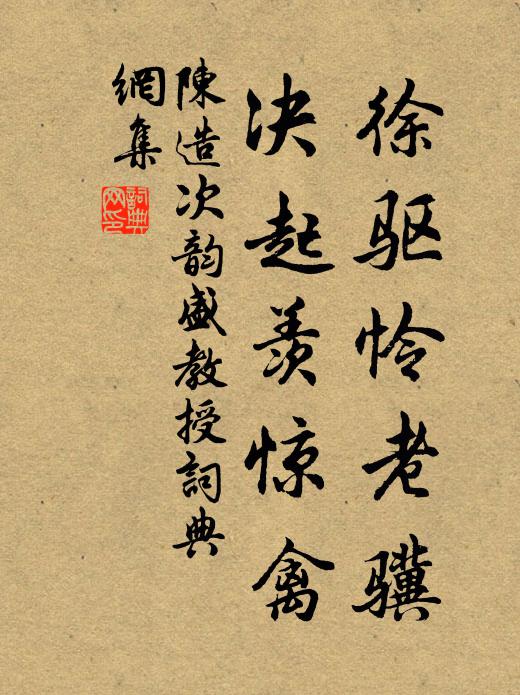 徐驱怜老骥
决起羡惊禽
陳造次韵盛教授詞典
網集
詞典網印